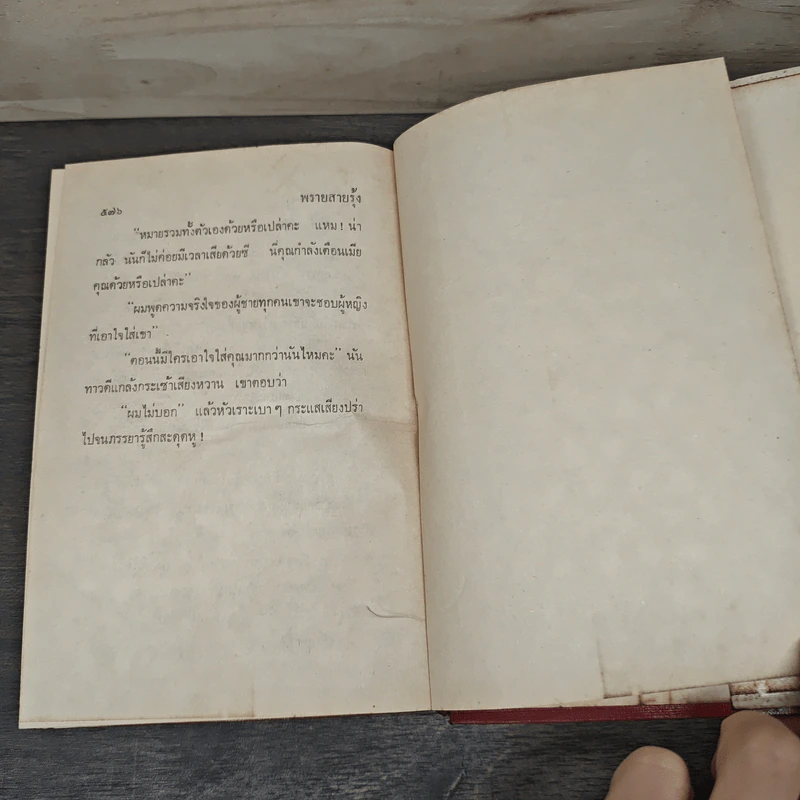 ๕๗๖ พรายสายรุ้ง
"หมายรวมทั้งตัวเองด้วยหรือเปล่าคะ แหม! น่า
กลัว นันก็ไม่ค่อยมีเวลาเสียด้วยซี นี่คุณกำลังเตือนเมีย
คุณด้วยหรือเปล่าคะ"
"ผมพูดความจริงใจของผู้ชายทุกคนเขาจะชอบผู้หญิง
ที่เอาใจใส่เขา"
"ตอนนี้มีใครเอาใจใส่คุณมากกว่านันไหมคะ" นัน
ทาวดีแกล้งกระเซ้าเสียงหวาน เขาตอบว่า
"ผมไม่บอก" แล้วหัวเราะเบา ๆ กระแสเสียงปร่า
ไปจนภรรยารู้สึกสะดุดหู!